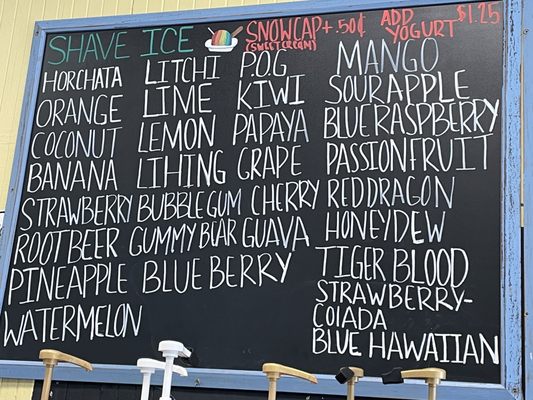 SHAVE ICE SNOWCAP +.50¢ ADD $1.25
(SWEET CREAM) YOGURT
HORCHATA LITCHI P.O.G MANGO
ORANGE LIME KIWI SOUR APPLE
COCONUT LEMON PAPAYA BLUE RASPBERRY
BANANA LIHING GRAPE PASSIONFRUIT
STRAWBERRY BUBBLE GUM CHERRY RED DRAGON
ROOT BEER GUMMY BEAR GUAVA HONEYDEW
PINEAPPLE BLUEBERRY TIGER BLOOD
WATERMELON STRAWBERRY-
COLADA
BLUE HAWAIIAN